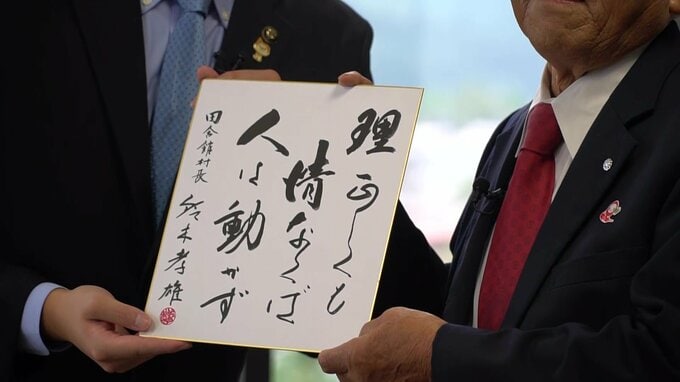 理正しくも
情なくば
人は動かず
田舎館村長
鈴木孝雄